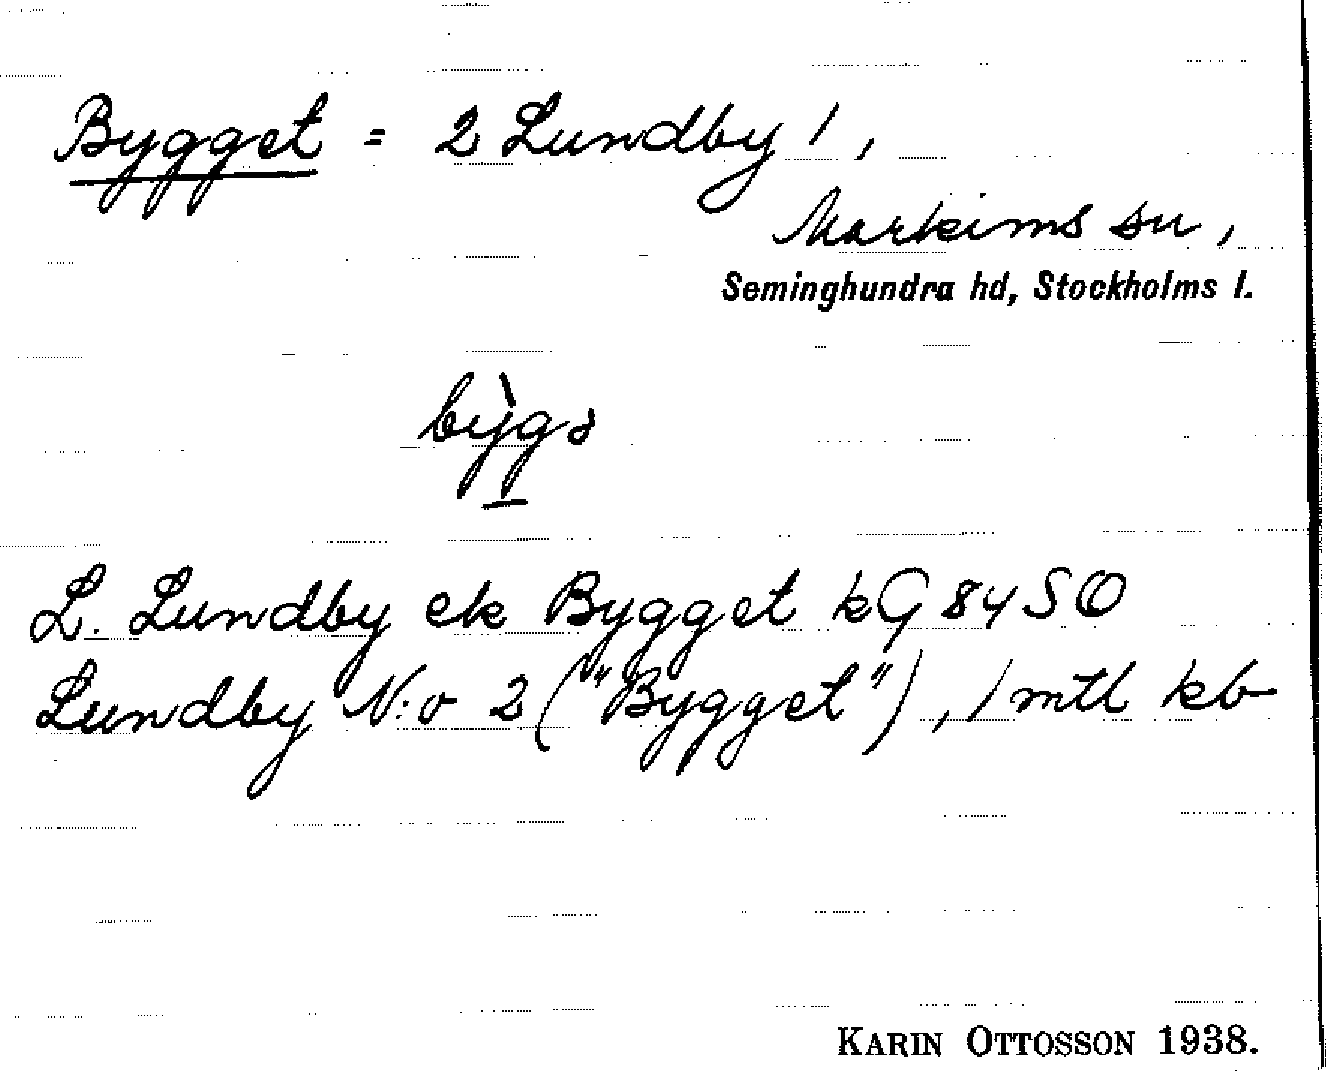 Bygget = 2 Lundby 1,
Markims sn,
Seminghundra hd, Stockholms l.
bỳgə
L. Lundby ek Bygget kG 84 SO
Lundby N:o 2 ("Bygget"), 1 mtl kb
KARIN OTTOSSON 1938.